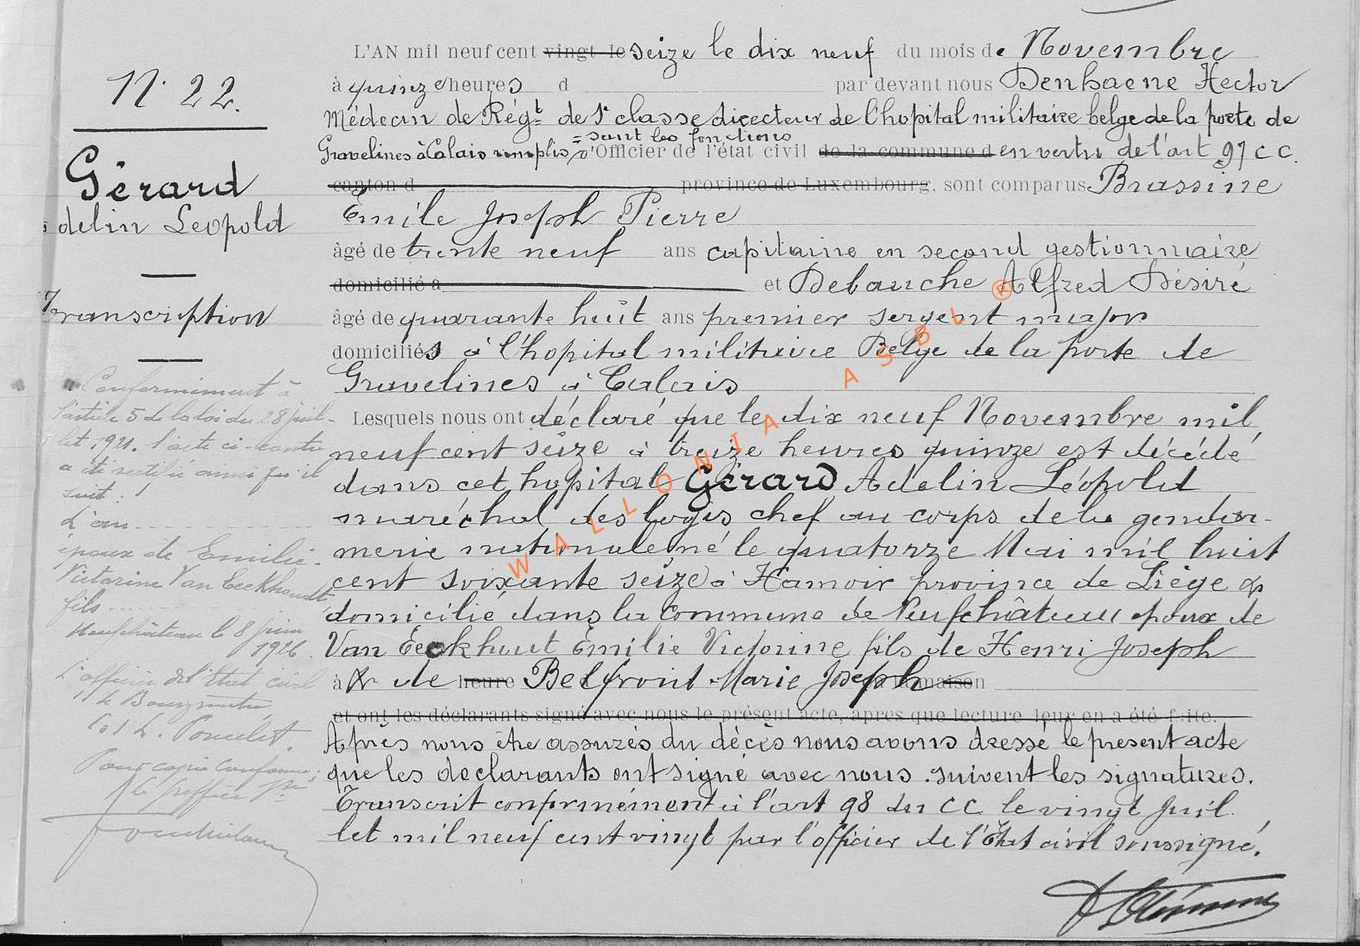 N° 22.
Gérard
Adelin Léopold
Transcription
Conformément à
l'article 5 de la loi du 28 juil-
let 1921. l'acte ci-contre
a été rectifié ainsi qu'il
suit :
L'an
époux de Emilie-
Victorine Van Eeckhoudt
fils
Neufchâteau le 8 juin
1926.
L'officier de l'état civil
le Bourgmestre
(s) L. Poncelet.
Pour copie conforme,
le greffier
L'AN mil neuf cent vingt-le seize le dix neuf du mois de Novembre
à quinze heures d par devant nous Denhaene Hector
Médecin de Régt de 1e classe directeur de l'hopital militaire belge de la porte de
Gravelines à Calais remplissant les fonctions d'Officier de l'état civil de la commune d en vertu de l'art 97 CC.
canton d province de Luxembourg, sont comparus Brassine
Émile Joseph Pierre
âgé de trente neuf ans capitaine en second gestionnaire
domicilié à et Debauche Alfred Désiré
âgé de quarante huit ans premier sergent major
domiciliés à l'hopital militaire Belge de la porte de
Gravelines à Calais
Lesquels nous ont déclaré que le dix neuf Novembre mil
neuf cent seize à treize heures quinze est décédé
dans cet hopital Gérard Adelin Léopold
maréchal des logis chef au corps de la gendar-
merie nationale né le quatorze Mai mil huit
cent soixante seize à Hamoir province de Liège &
domicilié dans la commune de Neufchâteau époux de
Van Eeckhout Émilie Victorine fils de Henri Joseph
à & de heure Belfroid Marie Joseph maison
et ont les déclarants signé avec nous le présent acte, après que lecture leur en a été faite.
Après nous être assurés du décès nous avons dressé le présent acte
que les declarants ont signé avec nous. suivent les signatures.
Transcrit conformément à l'art 98 du CC le vingt juil.
let mil neuf cent vingt par l'officier de l'État civil soussigné.
WALLONIA ASBL ®